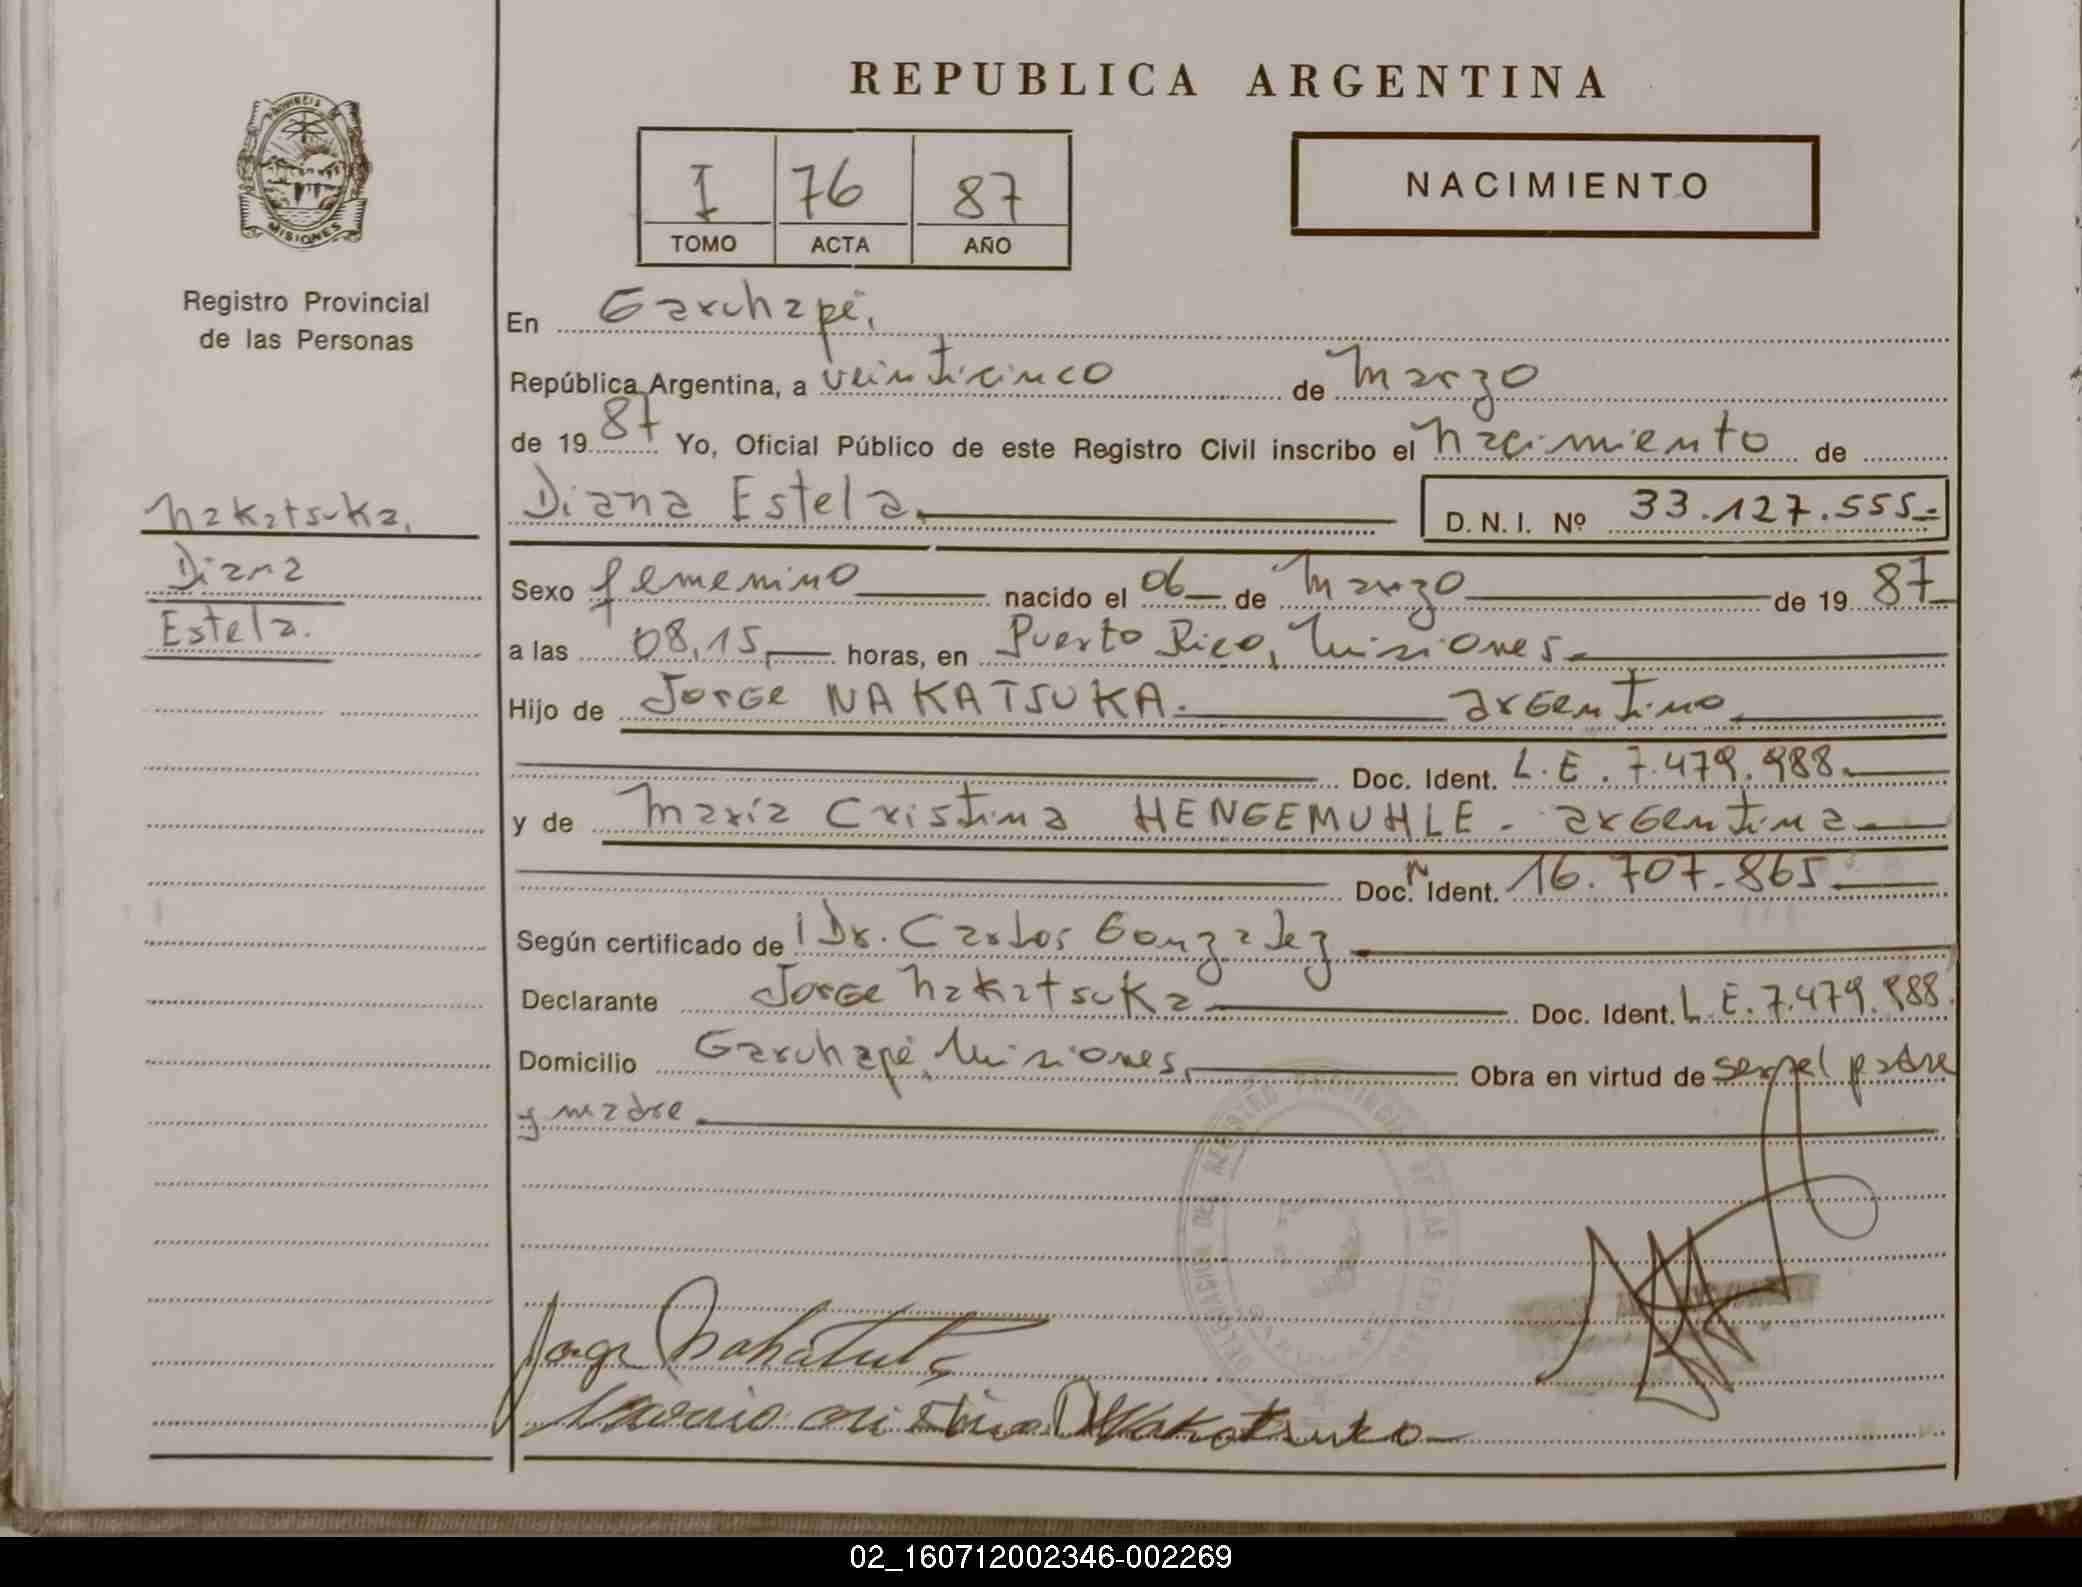 REPUBLICA ARGENTINA
PROVINCIA DE
MISIONES
Registro Provincial
de las Personas
I 76 87
TOMO ACTA AÑO
NACIMIENTO
En Garuhapé,
República Argentina, a veinticinco de Marzo
de 1987 Yo, Oficial Público de este Registro Civil inscribo el Nacimiento de
Diana Estela. D. N. I. Nº 33.127.555.-
Nakatsuka,
Diana
Estela.
Sexo femenino nacido el 06 de Marzo de 1987
a las 08,15, horas, en Puerto Rico, Misiones.
Hijo de Jorge NAKATSUKA. argentino
Doc. Ident. L. E. 7.479.988.
y de María Cristina HENGEMUHLE - argentina
Doc. N Ident. 16.707.865
Según certificado de l Dr. Carlos Gonzalez
Declarante Jorge Nakatsuka Doc. Ident. L. E. 7.479.988.
Domicilio Garuhapé, Misiones, Obra en virtud de ser el padre
y madre
DELEGACION DEL REGISTRO PROVINCIAL DE LAS PERSONAS
Jorge Nakatsuka
María Cristina Nakatsuka
02_160712002346-002269